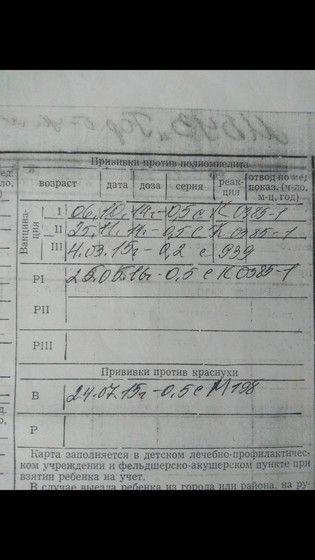 Прививки против полиомиелита
возраст дата доза серия реакция отвод по мед. показ. (число, м-ц, год)
Вакцинация
I 06.10.14г - 0,5 с К 0385-1
II 25.11.14г - 0,5 с К 0385-1
III 4.03.15г - 0,2 с 939
RI 25.05.16г - 0,5 с К 0385-1
RII
RIII
Прививки против краснухи
В 24.07.15г - 0,5 с М 198
Р
Карта заполняется в детском лечебно-профилактичес-
ком учреждении и фельдшерско-акушерском пункте при
взятии ребенка на учет.
В случае выезда ребенка из города или района, на ру-